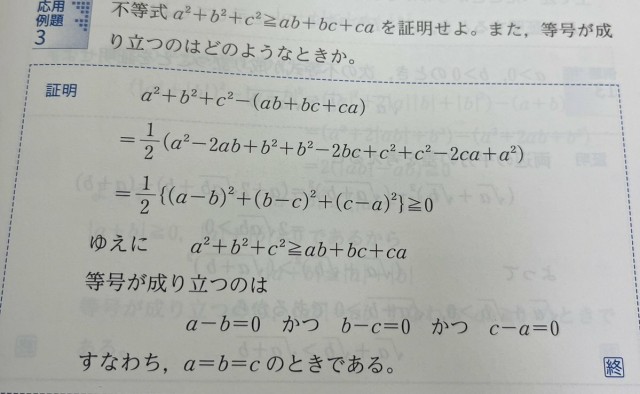 応用
例題
3
不等式 a²+b²+c²≧ab+bc+ca を証明せよ。また，等号が成
り立つのはどのようなときか。
証明
a²+b²+c²−(ab+bc+ca)
=1/2(a²−2ab+b²+b²−2bc+c²+c²−2ca+a²)
=1/2{(a−b)²+(b−c)²+(c−a)²}≧0
ゆえに a²+b²+c²≧ab+bc+ca
等号が成り立つのは
a−b=0 かつ b−c=0 かつ c−a=0
すなわち，a=b=c のときである。
終